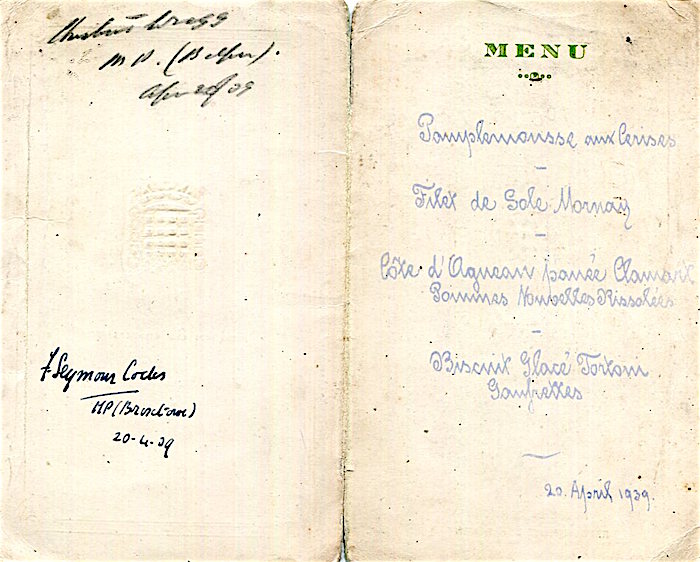 Herbert Wragg
M.P. (Belper).
Apr 20/39
F Seymour Cocks
MP (Broxtowe)
20-4-39
MENU
Pamplemousse aux Cerises
–
Filet de Sole Mornay
–
Côte d'Agneau panée Clamart
Pommes Nouvelles Rissolées
–
Biscuit Glacé Tortoni
Gaufrettes
20. April 1939.